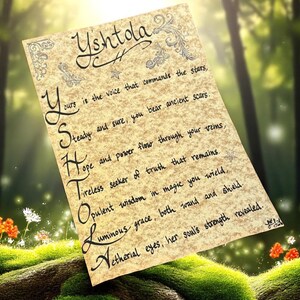 Yshtola
Yours is the voice that commands the stars,
Steady and sure, you bear ancient scars.
Hope and power flow through your veins,
Tireless seeker of truth that remains.
Opulent wisdom in magic you wield,
Luminous grace, both sword and shield
Aetherial eyes, her soul's strength revealed.